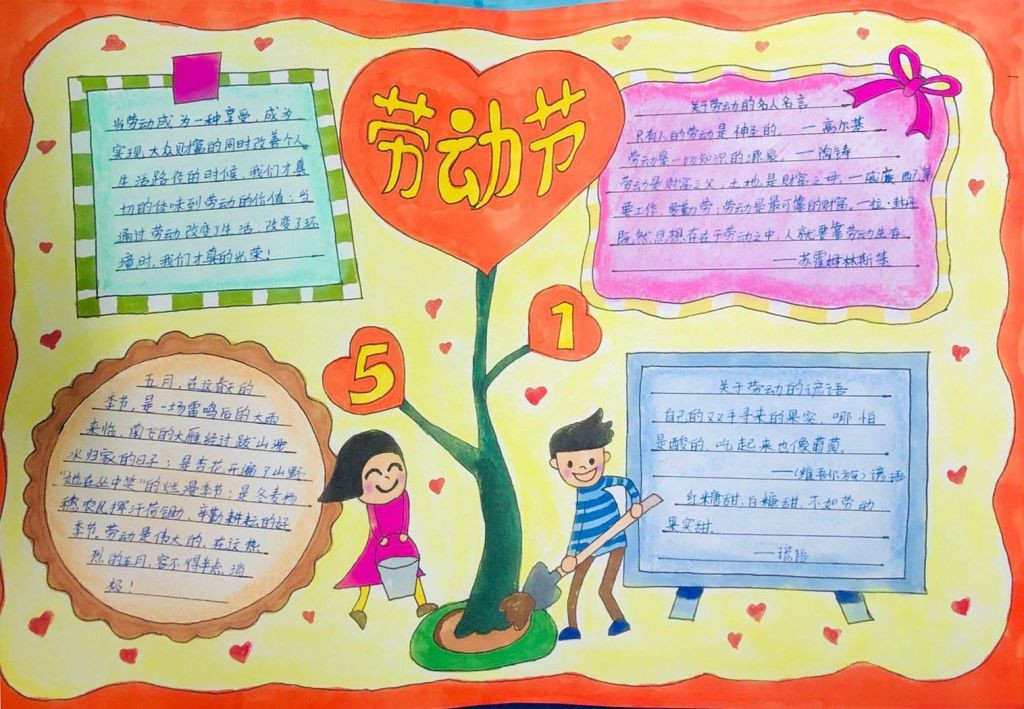 劳动节
5
1
当劳动成为一种享受,成为
实现大众财富的同时改善个人
生活路径的时候,我们才真
切的体味到劳动的价值;当
通过劳动改变了生活,改变了环
境时,我们才真的光荣!
关于劳动的名人名言
只有人的劳动是神圣的。—高尔基
劳动是一切知识的源泉。—陶铸
劳动是财富之父,土地是财富之母。—威廉 配第
要工作,要勤劳:劳动是最可靠的财富。—拉·封丹
既然思想存在于劳动之中,人就要靠劳动生存
——苏霍姆林斯基
五月,在这春天的
季节,是一场雷鸣后的大雨
来临,南飞的大雁经过跋山涉
水归家的日子;是杏花开遍了山野
“她在丛中笑”的烂漫季节;是冬麦扬
穗,农民挥汗荷锄,辛勤耕耘的好
季节。劳动是伟大的,在这热
烈的五月,容不得半点消
极!
关于劳动的谚语
自己的双手寻来的果实,哪怕
是酸的,吃起来也像葡萄。
——(维吾尔族)谚语
红糖甜,白糖甜,不如劳动
果实甜。
——谚语